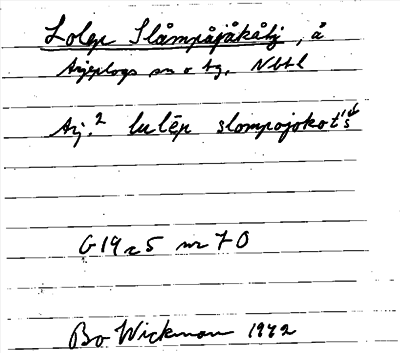 Lolep Slåmpåjåkåtj, å
Arjeplogs sn o tg, Nbtl
Arj.² lulēp slompojokot's
G19a5 nr 70
Bo Wickman 1942